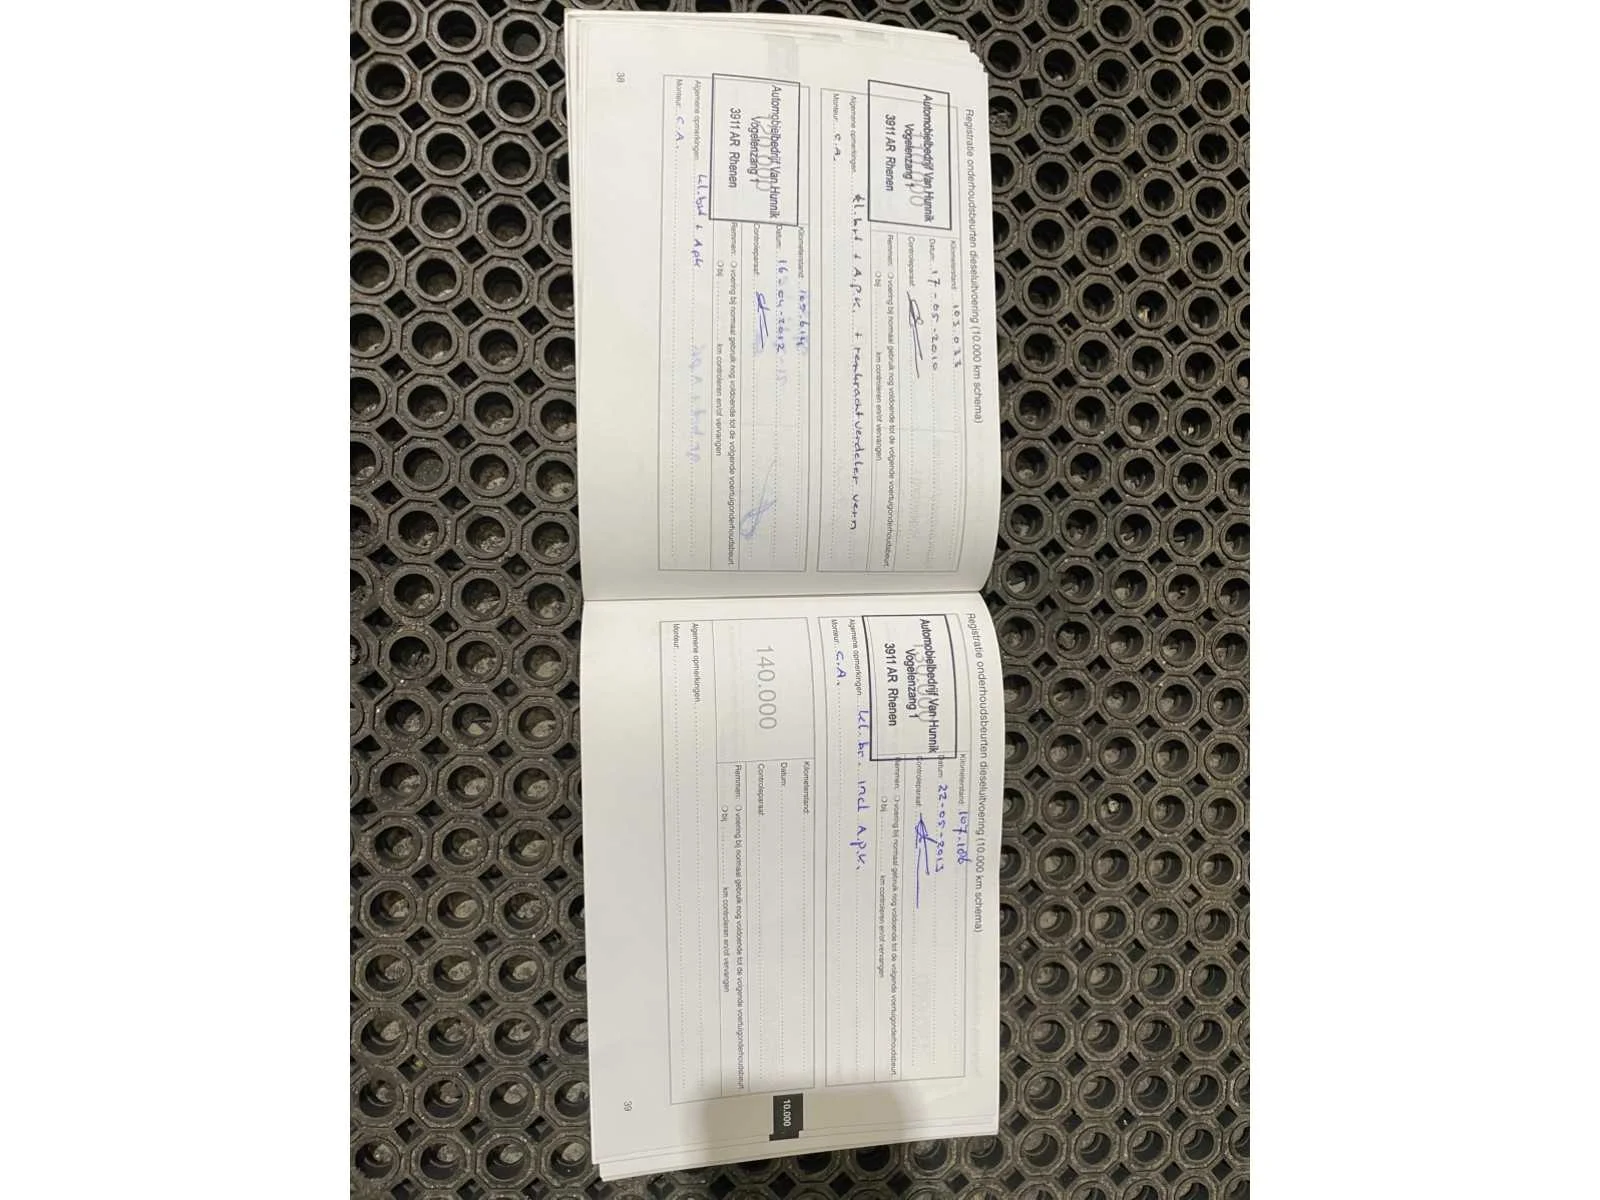 Registratie onderhoudsbeurten dieseluitvoering (10.000 km schema)
110.000
Automobielbedrijf Van Hunnik
Vogelenzang 1
3911 AR Rhenen
Kilometerstand: 103.033
Datum: 17-05-2010
Controleparaaf:
Remmen: voering bij normaal gebruik nog voldoende tot de volgende voertuigonderhoudsbeurt.
bij km controleren en/of vervangen
Algemene opmerkingen: kl. brt + A.P.K. + remkrachtverdeler vern
Monteur: C.A.
120.000
Automobielbedrijf Van Hunnik
Vogelenzang 1
3911 AR Rhenen
Kilometerstand:
Datum: 16-04-2012
Controleparaaf:
Remmen: voering bij normaal gebruik nog voldoende tot de volgende voertuigonderhoudsbeurt.
bij km controleren en/of vervangen
Algemene opmerkingen: kl. brt + Apk
Monteur: C.A.
38
Registratie onderhoudsbeurten dieseluitvoering (10.000 km schema)
130.000
Automobielbedrijf Van Hunnik
Vogelenzang 1
3911 AR Rhenen
Kilometerstand: 107.186
Datum: 22-05-2013
Controleparaaf:
Remmen: voering bij normaal gebruik nog voldoende tot de volgende voertuigonderhoudsbeurt.
bij km controleren en/of vervangen
Algemene opmerkingen: kl. br. incl A.P.K.
Monteur: C.A.
140.000
Kilometerstand:
Datum:
Controleparaaf:
Remmen: voering bij normaal gebruik nog voldoende tot de volgende voertuigonderhoudsbeurt.
bij km controleren en/of vervangen
Algemene opmerkingen:
Monteur:
10.000
39